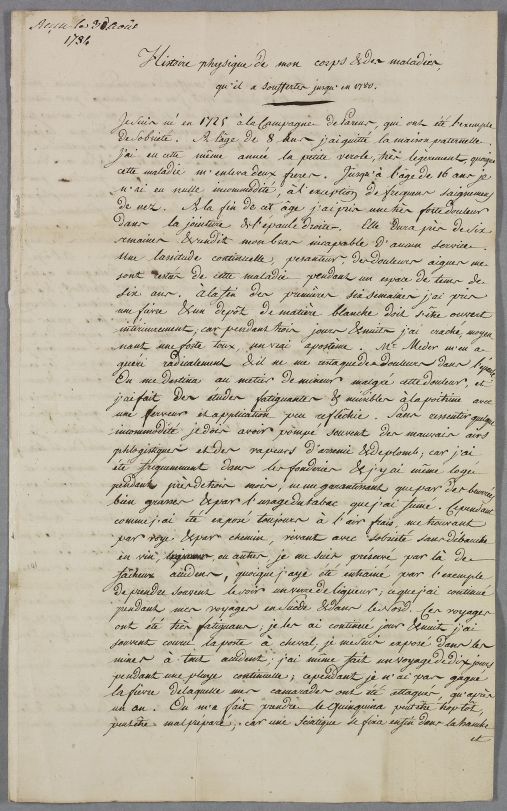 Reçu le 30 Août
1784
Histoire physique de mon corps & des maladies,
qu'il a souffertes jusqu'en 1780.
Je suis né en 1725 à la Campagne de Parens, qui ont été l'exemple
de sobrieté. A l'âge de 8 ans j'ai quitté la maison paternelle.
J'ai eu cette même année la petite verole, très legerement, quoique
cette maladie m'enleva deux freres. Jusqu'à l'age de 16 ans je
n'ai eu nulle incommodité, à l'exception de frequens saignemens
de nez. A la fin de cet âge j'ai pris une très forte douleur
dans la jointure de l'épaule droite. Elle dura près de six
semaines & rendit mon bras incapable d'aucun service.
Une lassitude continuelle, pesanteur, des douleurs aigues me
sont restés de cette maladie pendant un espace de tems de
six ans. A la fin des premières six semaines j'ai pris
une fievre & un depôt de matiere blanche doit s'être ouvert
interieurement, car pendant trois jours & nuits j'ai craché, moyen
nant une forte toux un vrai aposteme. Mr. Meder m'en a
gueri radicalement & il ne me resta que des douleurs dans l'épaule
On me destina au metier de mineur malgré cette douleur, et
j'ai fait des etudes fatiguantes & nuisibles à la poitrine avec
une ferveur et application peu reflechie. Sans ressentir quelque
incommodité je dois avoir pompé souvent des mauvais airs
phlogistiques et des vapeurs d'arsenic & de plomb; car j'ai
été frequemment dans les fonderies & j'y ai même logé
pendant près de trois mois, ne me garantissant que par des beurrées
bien grasses & par l'usage du tabac que j'ai fumé. Cependant
comme j'ai été exposé toujours à l'air frais, me trouvant
par voye & par chemin, vivant avec sobrieté sans debauche
en vin, ou autres je me suis preservé par là de
facheux accidens, quoique j'aye été entrainé par l'exemple
de prendre souvent le soir un verre de liqueur; ce que j'ai continué
pendant mes voyages en Suede & dans le Nord. Ces voyages
ont été très fatiguans; je les ai continué jour & nuit, j'ai
souvent couru la poste à cheval, je me suis exposé dans les
mines à tout accident; j'ai même fait un voyage de dix jours
pendant une pluye continuelle; cependant je n'ai pas gagné
la fievre de laquelle mes camarades ont été attaqués, qu'après
un an. On m'a fait prendre le Quinquina peut être trop tôt,
peut être mal preparé; car une Sciatique se fixa enfin dans la hanche
et